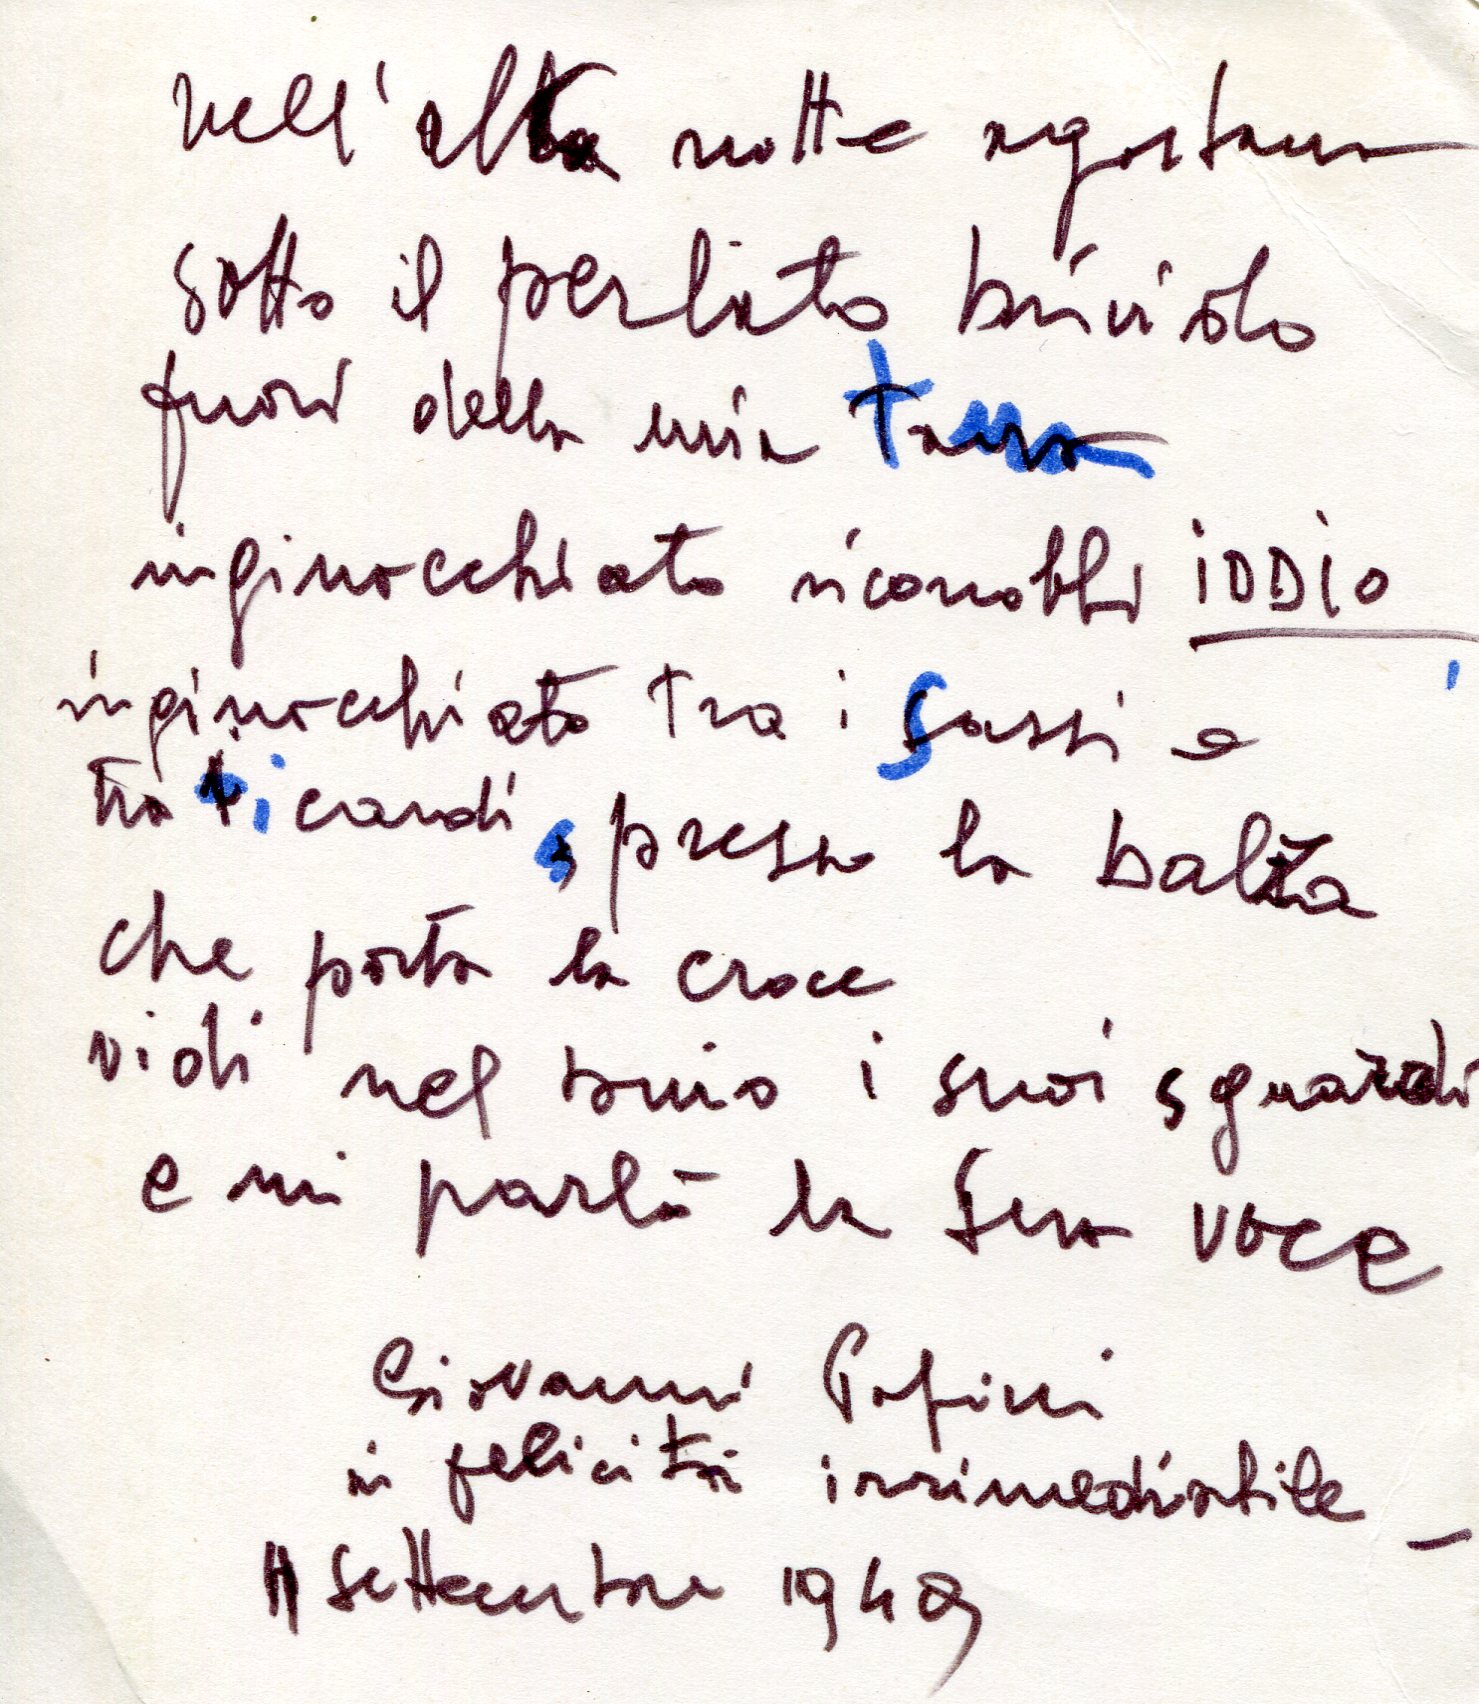 nell'alta notte agostana
sotto il perlato brivido
fuori della mia tana
inginocchiato riconobbi IDDIO
inginocchiato tra i sassi e
tra i cardi, presso la balza
che porta la croce
vidi nel buio i suoi sguardi
e mi parlò la sua voce
Giovanni Papini
in felicità irrimediabile –
11 Settembre 1949